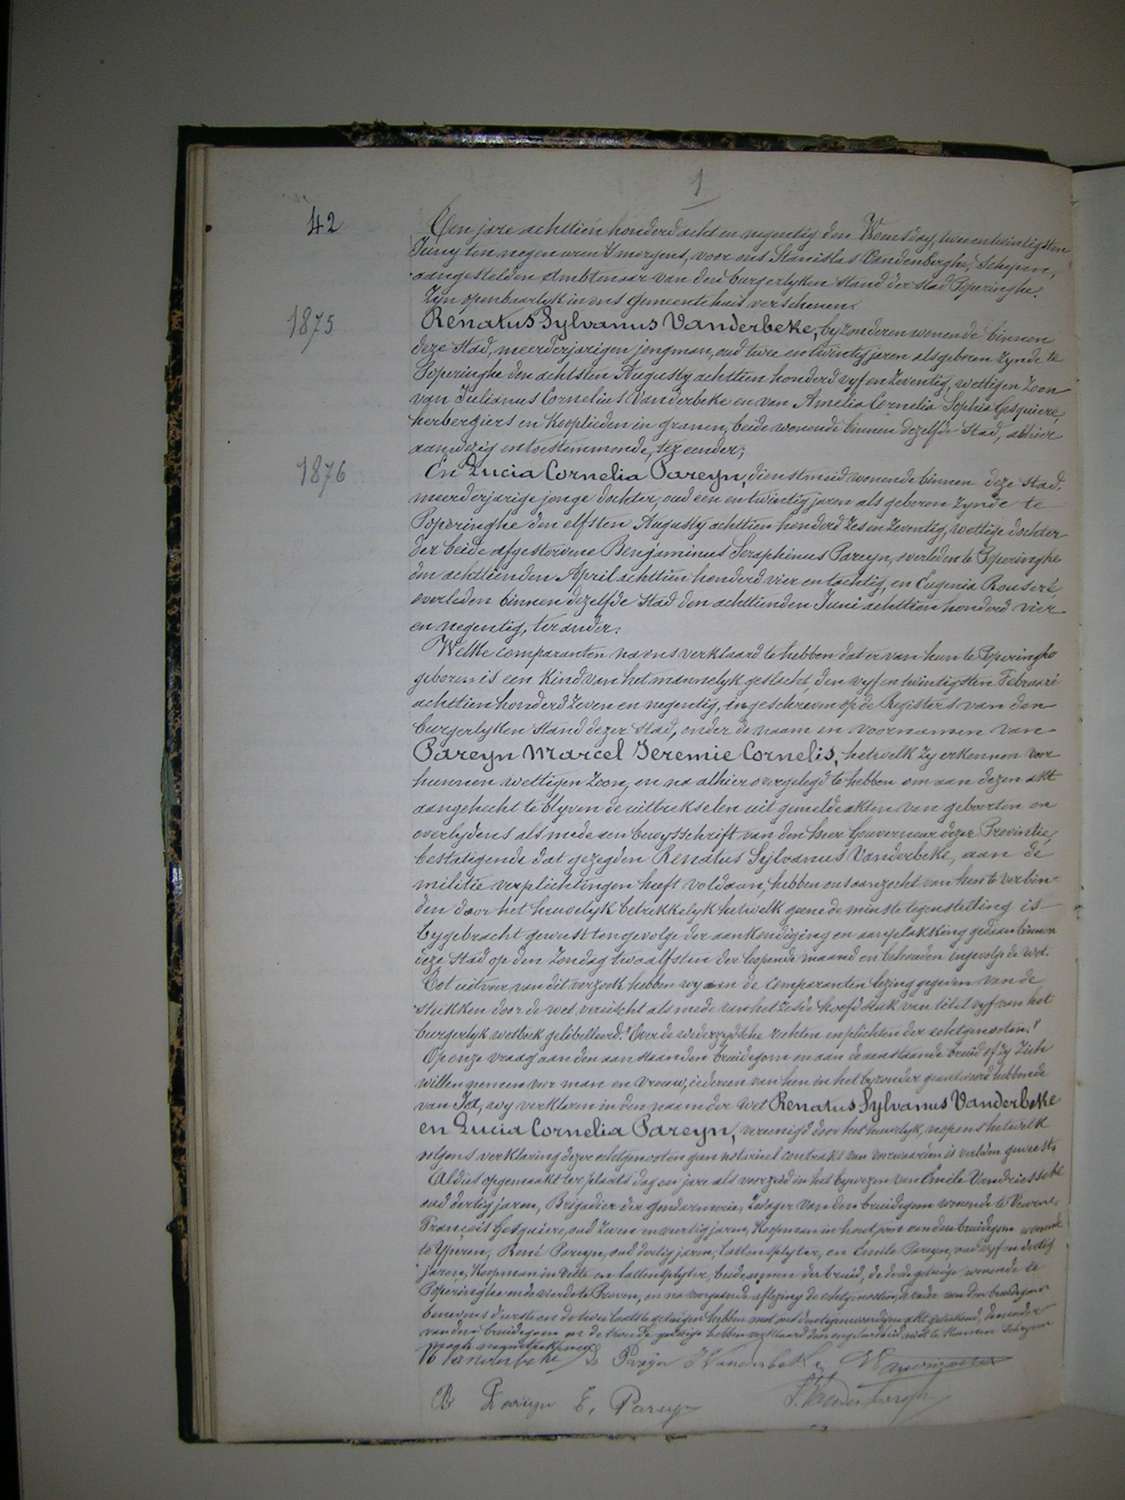 1
42
Den jare achttien honderd acht en negentig den Woensdag, twee en twintigsten
Juny ten negen uren 's morgens, voor ons Stanislas Vandenberghe, Schepen,
aangestelden Ambtenaar van den burgerlyken stand der stad Poperinghe.
Zyn openbaarlyk in ons gemeentehuis verschenen.
1875
Renatus Sylvanus Vanderbeke, byzonderen wonende binnen
deze stad, meerderjarigen jongman, oud twee en twintig jaren als geboren zynde te
Poperinghe den achtsten Augusty achttien honderd vyf en zeventig, wettigen zoon
van Julianus Cornelius Vanderbeke en van Amelia Cornelia Sophia Gesquiere,
herbergiers en kooplieden in granen, beide wonende binnen dezelfde stad, alhier
aanwezig en toestemmende, ter eender;
1876
En Lucia Cornelia Pareyn, dienstmeid wonende binnen deze stad,
meerderjarige jonge dochter, oud een en twintig jaren als geboren zynde te
Poperinghe den elfsten Augusty achttien honderd zes en zeventig, wettige dochter
der beide afgestorvene Benjaminus Seraphinus Pareyn, overleden te Poperinghe
den achttienden April achttien honderd vier en tachtig, en Eugenia Rouseré,
overleden binnen dezelfde stad den achttienden Juni achttien honderd vier
en negentig, ter ander.
Welke comparanten na ons verklaard te hebben dat er van hun te Poperinghe
geboren is een kind van het mannelyk geslacht, den vyf en twintigsten Februari
achttien honderd zeven en negentig, ingeschreven op de Registers van den
burgerlyken stand dezer stad, onder de naam en voornamen van
Pareyn Marcel Jeremie Cornelis, hetwelk zy erkennen voor
hunnen wettigen zoon, en na alhier overgelegd te hebben om aan dezen akt
aangehecht te blyven de uittrekselen uit gemelde akten van geboorten en
overlydens als mede een bewysschrift van den heer Gouverneur dezer Provintie,
bestatigende dat gezegden Renatus Sylvanus Vanderbeke, aan de
militie verplichtingen heeft voldaan, hebben ons aanzocht van hun te verbin-
den door het huwelyk betrekkelyk hetwelk geene de minste tegenstelling is
bygebracht geweest ten gevolge der aankondiging en aanplakking gedaan binnen
deze stad op den Zondag twaalfsten der loopende maand en behouden ingevolge de wet.
Tot uitvoer van dit verzoek hebben wy aan de comparanten lezing gegeven van de
stukken door de wet vereischt als mede van het zesde hoofdstuk van titel vyf van het
burgerlyk wetboek gelibelleerd: "Over de wederzydsche rechten en plichten der echtgenooten."
Op onze vraag aan den aanstaanden bruidegom en aan de aanstaande bruid of zy zich
willen nemen voor man en vrouw, iedereen van hen in het byzonder geantwoord hebbende
van Ja, wy verklaren in den naam der wet Renatus Sylvanus Vanderbeke
en Lucia Cornelia Pareyn, vereenigd door het huwelyk, nopens hetwelk
volgens verklaring dezer echtgenooten geen notarieel contrakt van voorwaarden is verleden geweest.
Aldus opgemaakt ter plaats dag en jare als voorzeid in het bywezen van Emile Vandriessche
oud dertig jaren, Brigadier der Gendarmerie, zwager van den bruidegom wonende te Veurne,
François Gesquiere, oud zeven en veertig jaren, koopman in hout, oom van den bruidegom wonende
te Yperen, René Pareyn, oud dertig jaren, lattensplyter, en Emile Pareyn, oud vyf en dertig
jaren, koopman in Velle en lattensplyter, beide oomen der bruid, de derde getuige wonende te
Poperinghe en de vierde te Proven, en na voorgaande aflezing de echtgenooten, de vader van den bruidegom
benevens d'eerste en de twee laatste getuigen hebben met ons dezen tegenwoordigen akt geteekend, de moeder
van den bruidegom en de tweede getuige hebben verklaard
R Vanderbeke L Pareyn J Vanderbeke
R Pareyn E. Pareyn S. Vandenberghe